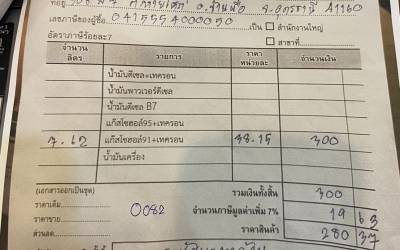 ที่อยู่ อ.บ้านผือ จ.อุดรธานี 41160
เลขภาษีของผู้ซื้อ 0415554000050 เป็น สำนักงานใหญ่
อัตราภาษีร้อยละ7 สาขาที่
จำนวนลิตร รายการ ราคาหน่วยละ จำนวนเงิน
น้ำมันดีเซล+เทครอน
น้ำมันพาวเวอร์ดีเซล
น้ำมันดีเซล B7
แก๊สโซฮอล์95+เทครอน
แก๊สโซฮอล์91+เทครอน 300
น้ำมันเครื่อง
(เอกสารออกเป็นชุด) รวมเงินทั้งสิ้น 300
ราคาเดิม 0082 จำนวนภาษีมูลค่าเพิ่ม 7% 19 63
ราคาขาย ราคาสินค้า 280 37
ส่วนลด